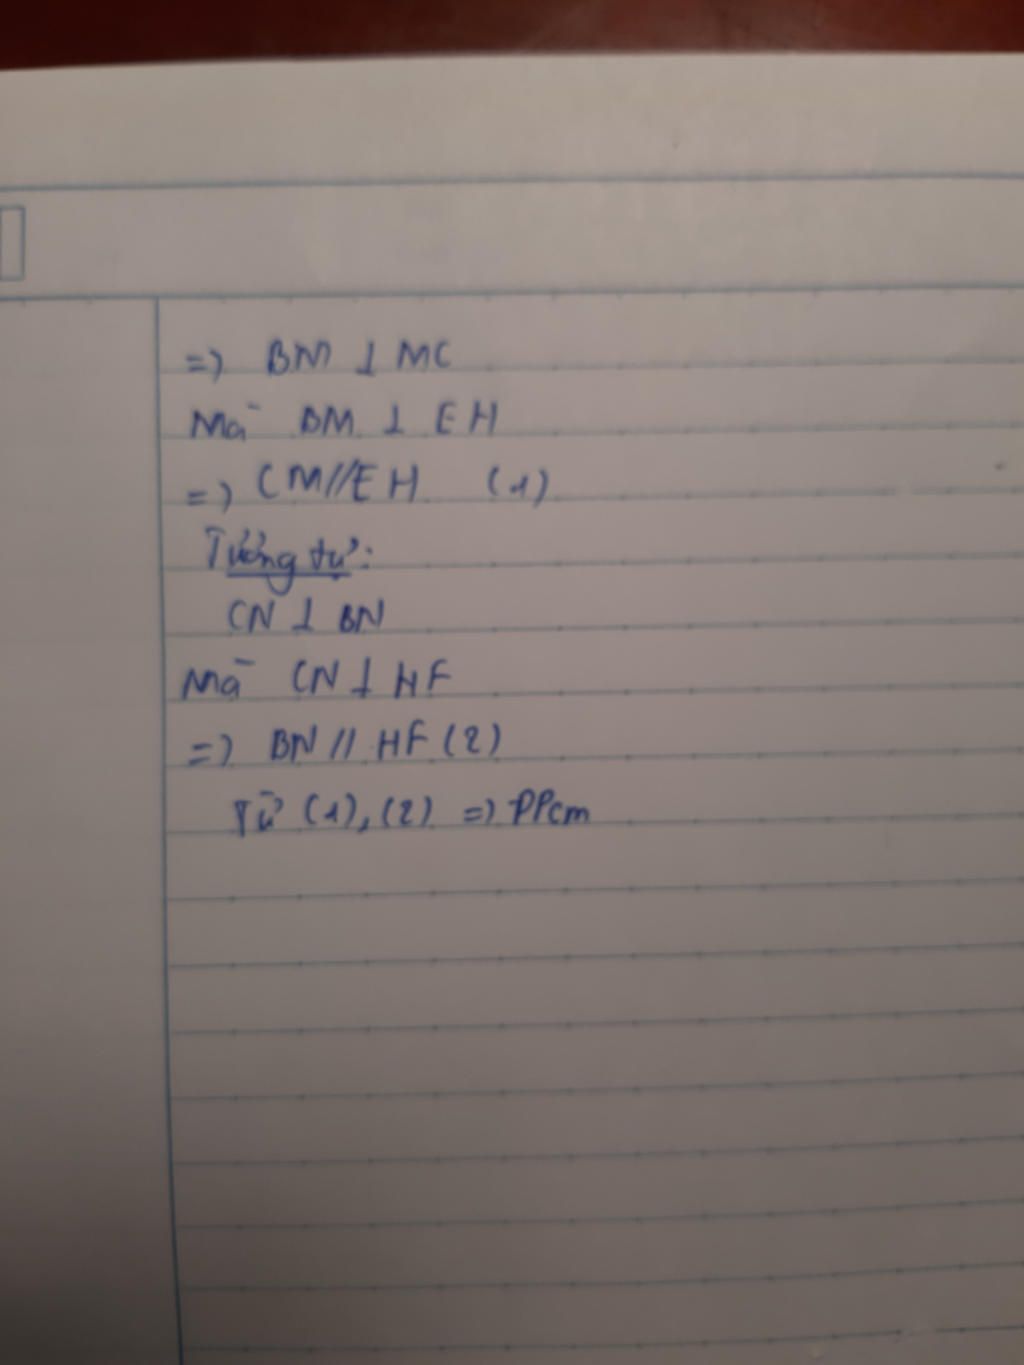 =) BM ⊥ MC
Mà BM ⊥ EH
=) CM//EH (1)
Tương tự:
CN ⊥ BN
Mà CN ⊥ HF
=) BN // HF (2)
Từ (1), (2) =) PPcm